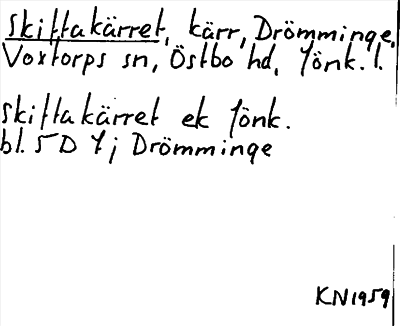 Skiftakärret, kärr, Drömminge,
Voxtorps sn, Östbo hd, Jönk. l.
Skiftakärret ek Jönk.
bl. 5D 7j Drömminge
KN1959